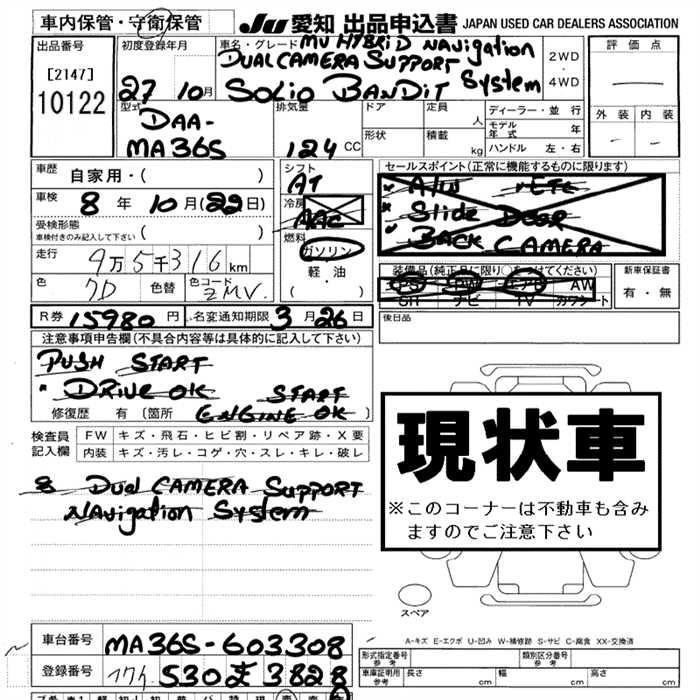 車内保管・守衛保管
JU 愛知 出品申込書 JAPAN USED CAR DEALERS ASSOCIATION
出品番号
[2147]
10122
初度登録年月
27 10月
車名・グレード MV HYBRiD NAVigation
DUAL CAMERA SUPPORT System
SOLiO BANDiT
2WD
・
4WD
評価点
外装 内装
型式
DAA-
MA36S
排気量
124 CC
ドア
定員 人
形状
積載 kg
ディーラー・並行
モデル年式 年
ハンドル 左・右
車歴 自家用・( )
車検 8年 10月(22日)
受検形態
車検付きのみ記入して下さい ( )
走行 9万5千316km
色 色替 色コード ZMV.
シフト
AT
冷房
AAC
燃料
ガソリン
軽油
・( )
セールスポイント(正常に機能するものに限ります)
A/W ETC
Slide DOOR
BACK CAMERA
装備品(純正品に限り○をつけてください)
PS PW エアB AW
SR ナビ TV カワシート
新車保証書
有・無
後日品
R券 15980円 名変通知期限 3月26日
注意事項申告欄(不具合内容等は具体的に記入して下さい)
PUSH START
* DRIVE OK START
修復歴 有 (箇所 ENGINE OK )
検査員記入欄
FW キズ・飛石・ヒビ割・リペア跡・X要
内装 キズ・汚レ・コゲ・穴・スレ・キレ・破レ
Dual CAMERA SUPPORT
NAVigation System
現状車
※このコーナーは不動車も含み
ますのでご注意下さい
スペア
A-キズ E-エクボ U-凹み W-補修跡 S-サビ C-腐食 XX-交換済
車台番号 MA36S-603308
登録番号 530 3828
形式指定番号 参考
類別区分番号 参考
車庫証明用 参考 長さ cm 幅 cm 高さ cm